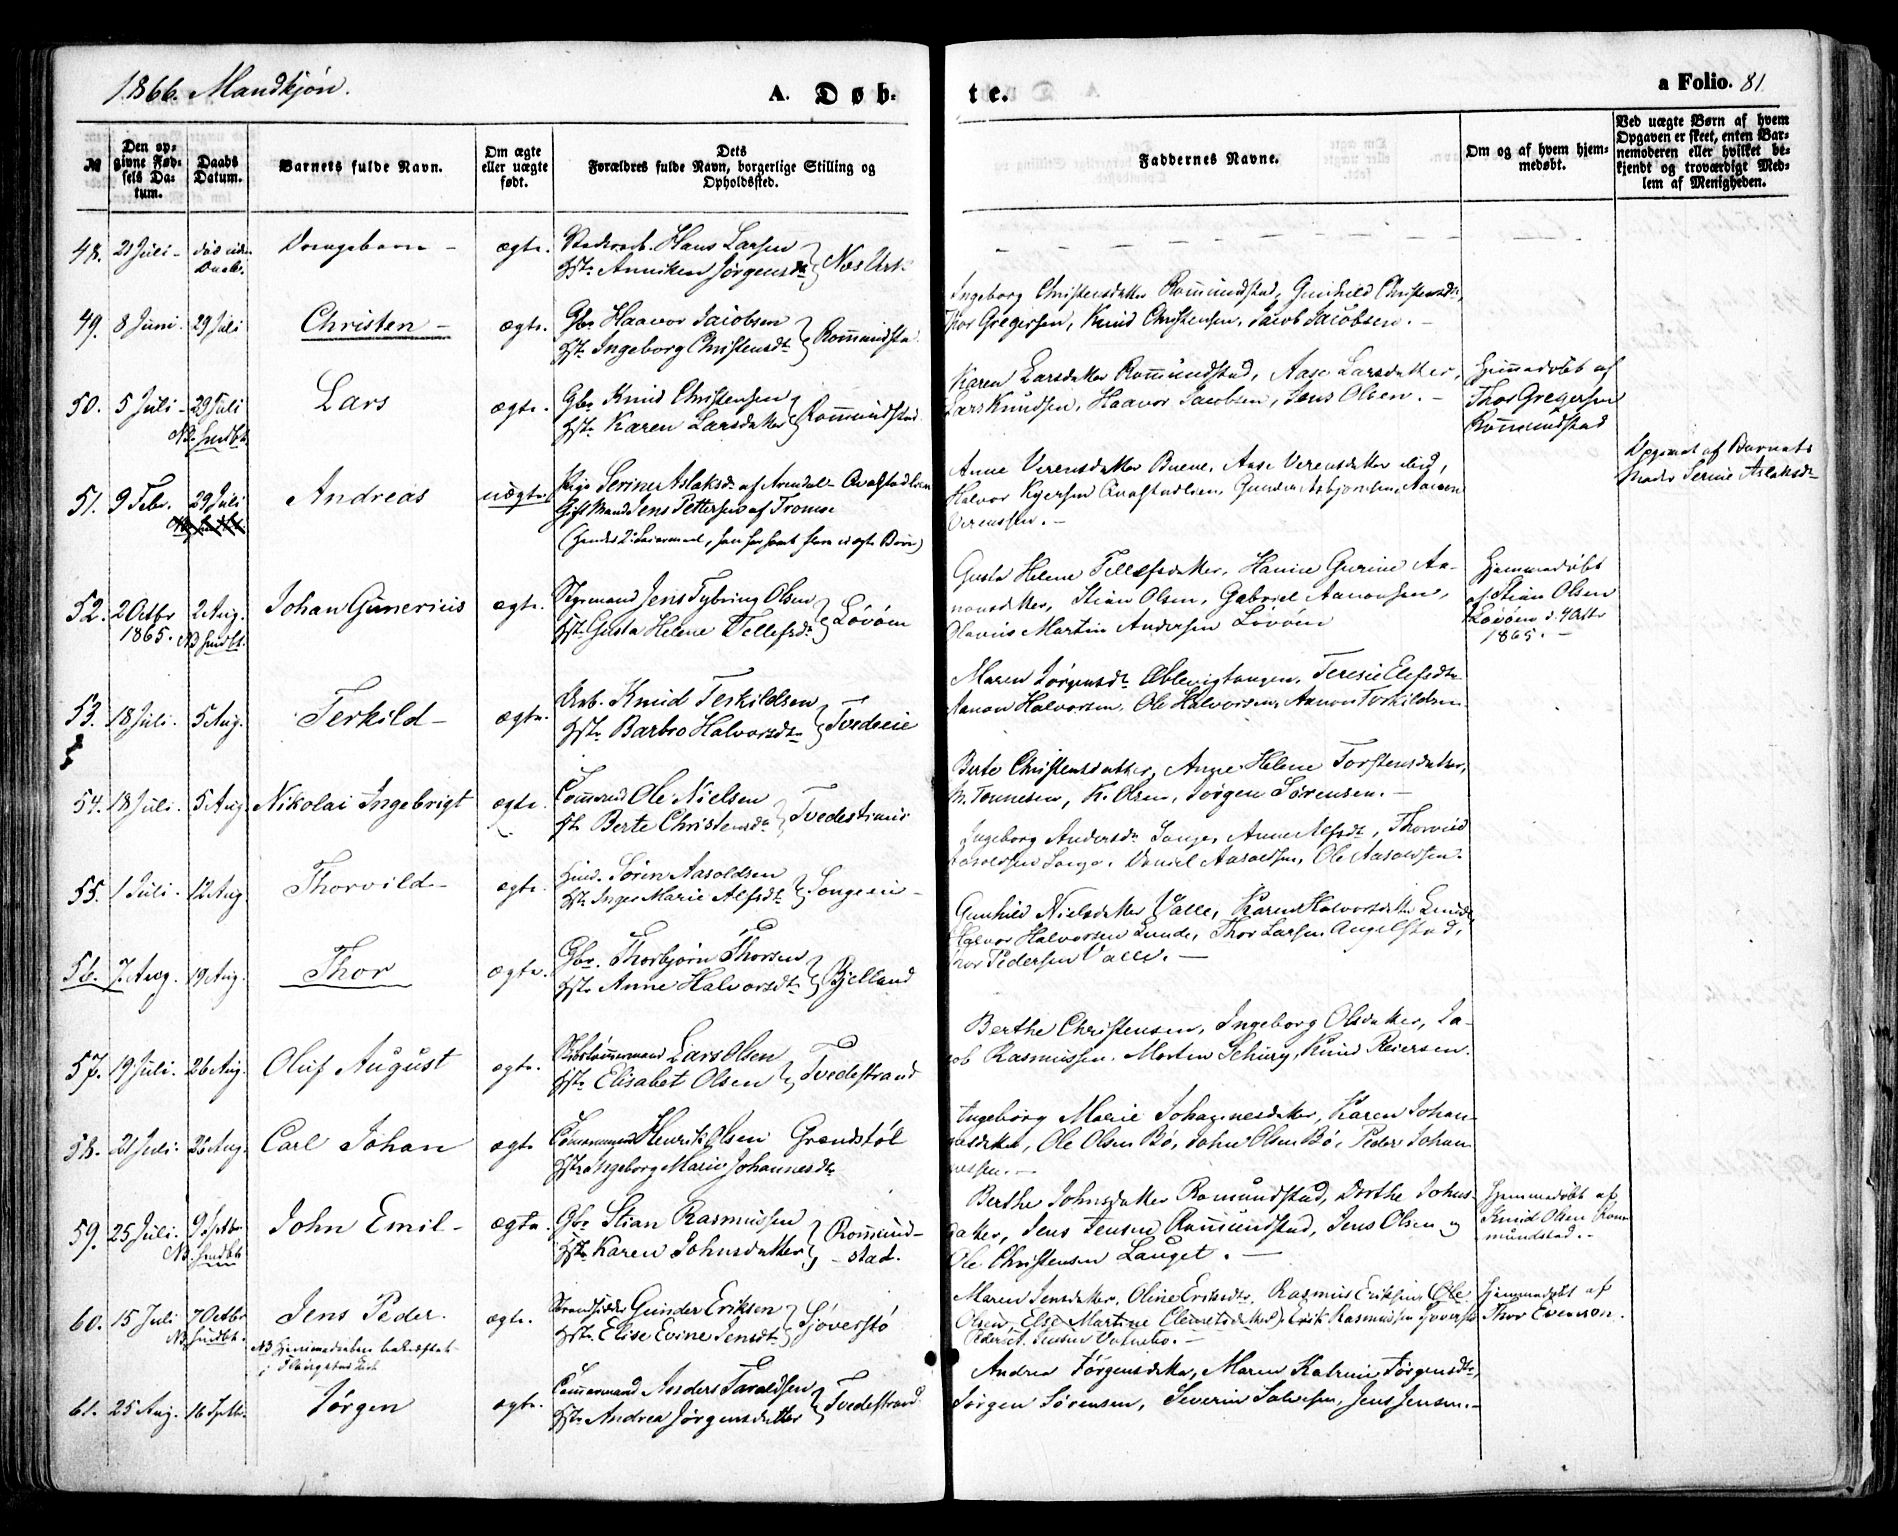 1866. Mandkjøn.
A. Døb-
te.
a Folio. 81
№
Den op-
givne Fød-
sels Da-
tum.
Daabs
Datum.
Barnets fulde Navn.
Om ægte
eller uægte
født.
Dets
Forældres fulde Navn, borgerlige Stilling og
Opholdssted.
Faddernes Navne.
Om og af hvem hjem-
medøbt.
Ved uægte Børn af hvem
Opgaven er skeet, enten Bar-
nemoderen eller hvilket be-
kjendt og troværdigt Med-
lem af Menigheden.
48. 21 Juli - død uden Daab. ægte. Hans Larsen
Hst. Anniken Jørgensdr Næs Verk
Ingeborg Christensdatter Rommundstad, Gunhild Christensdr,
49. 8 Juni. 29 Juli Christen - ægte. Gbr Haavor Jacobsen
Hst. Ingeborg Christensdr Rommundsta
Thor Gregersen, Knud Christensen, Jacob Jacobsen. -
50. 5 Juli - 29 Juli Lars ægte. Gbr Knud Christensen
NB. hmdbt Hst. Karen Larsdatter Rommundstad
Karen Larsdatter Rommundstad, Aase Larsdatter,
Lars Knudsen, Haavor Jacobsen, Jens Olsen. -
Hjemmedøbt af
Thor Gregersen
Rommundstad
51. 9 Febr. 29 Juli Andreas uægte Pige Serine Aslaksdr af Arendal - Qvafstadlien
Gift Mand Jens Pettersen af Tromsø
Anne Verensdatter Buene, Aase Verensdatter ibid,
Halvor Kyersen Qvafstadlien, Gunder Asbjørnsen, Aanen
Verensen. -
Opgivet af Barnets
Moder Serine Aslaksdr
52. 2 Octbr 2 Aug. Johan Gunerius ægte. Styrmand Jens Tybring Olsen
1865. NB hmdbt. Hst. Gusta Helene Tellefsdr Løvøen
Gusta Helene Tellefsdatter, Hanne Gurine Aa-
nonsdatter, Stian Olsen, Gabriel Aanonsen,
Martin Andersen Løvøen
Hjemmedøbt
af Stian Olsen
Løvøen d. 4 Octbr
1865. -
53. 18 Juli. 5 Aug. Terkild - ægte. Arb. Knud Terkildsen
Hst. Barbro Halvorsdr Tvedeeie
Maren Jørgensdr Æblevigtangen, Teresie Elefsdr
Aanon Halvorsen, Ole Halvorsen, Aanon Torkildsen
54. 18 Juli. 5 Aug Nikolai Ingebrigt ægte. Tømmerm. Ole Nielsen
Hst. Berte Christensdr Tvedestrand
Berte Christensdatter, Anne Helene Torstensdatter,
M. Tønnesen, K. Olsen, Jørgen Sørensen. -
55. 1 Juli. 12 Aug Thorvild - ægte. Søren Aasoldsen
Hst. Inger Marie Alfsdr Songeeie -
Ingeborg Andersdr Songe, Anne Alfsdr, Thorvild
Aasoldsen Songe, Daniel Aasoldsen, Ole Aasoldsen.
56. 7. Aug. 19 Aug. Thor ægte. Gbr. Thorbjørn Thorsen
Hst. Anne Halvorsdr Bjelland
Gunhild Nielsdatter Valle, Karen Halvorsdatter Lunde
Halvor Halvorsen Lunde, Thor Larsen Angelstad,
Thor Pedersen Valle. -
57. 19 Juli. 26 Aug. Oluf August ægte. Skibstømmermand Lars Olsen
Hst. Elisabet Olsen Tvedestrand
Berthe Christensen, Ingeborg Olsdatter, Ja-
cob Rasmussen. Morten Schury, Knud Reiersen.
58. 21 Juli. 26 Aug. Carl Johan ægte Tømmermand Henrik Olsen Grendstøl
Hst. Ingeborg Marie Johannesdr
Ingeborg Marie Johannesdatter, Karen Johan-
nesdatter, Ole Olsen Bø, John Olsen Bø, Peder Johan
nessen. -
59. 25 Juli. 9 Septbr John Emil - ægte. Gbr Stian Rasmussen
NB. hmdbt Hst. Karen Johnsdatter Rommund-
- stad.
Berthe Johnsdatter Romundstad, Dorthe Johns-
datter, Jens Jensen Rommundstad, Jens Olsen og
Ole Christensen Lauget. -
Hjemmedøbt af
Knud Olsen Rom-
mundstad. -
60. 15 Juli 7 Octbr Jens Peder. ægte. Strandsidder Gunder Eriksen
NB. hmdbt. Hst. Elise Evine Jensdr Sjøverstø
NB Hjemmedaaben bekræftet
Maren Jensdatter, Oline Eriksdr, Rasmus Eriksen, Ole
Olsen, Else Martine Clemetsdatter, Erik Rasmussen Sjøverstø
Hjemmedøbt af
Thor Evenson.
61. 25 Aug. 16 Septbr. Jørgen ægte. Tømmermand Anders Taraldsen
Hst. Andrea Jørgensdatter Tvedestrand
Andrea Jørgensdatter, Maren Katrine Jørgensdr,
Jørgen Sørensen, Severin Salvesen, Jens Jensen. -